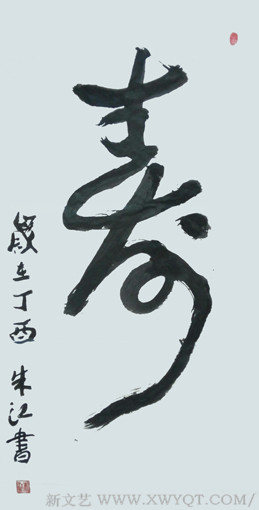 寿
歲在丁酉 朱江書
新文艺 WWW.XWYQT.COM/